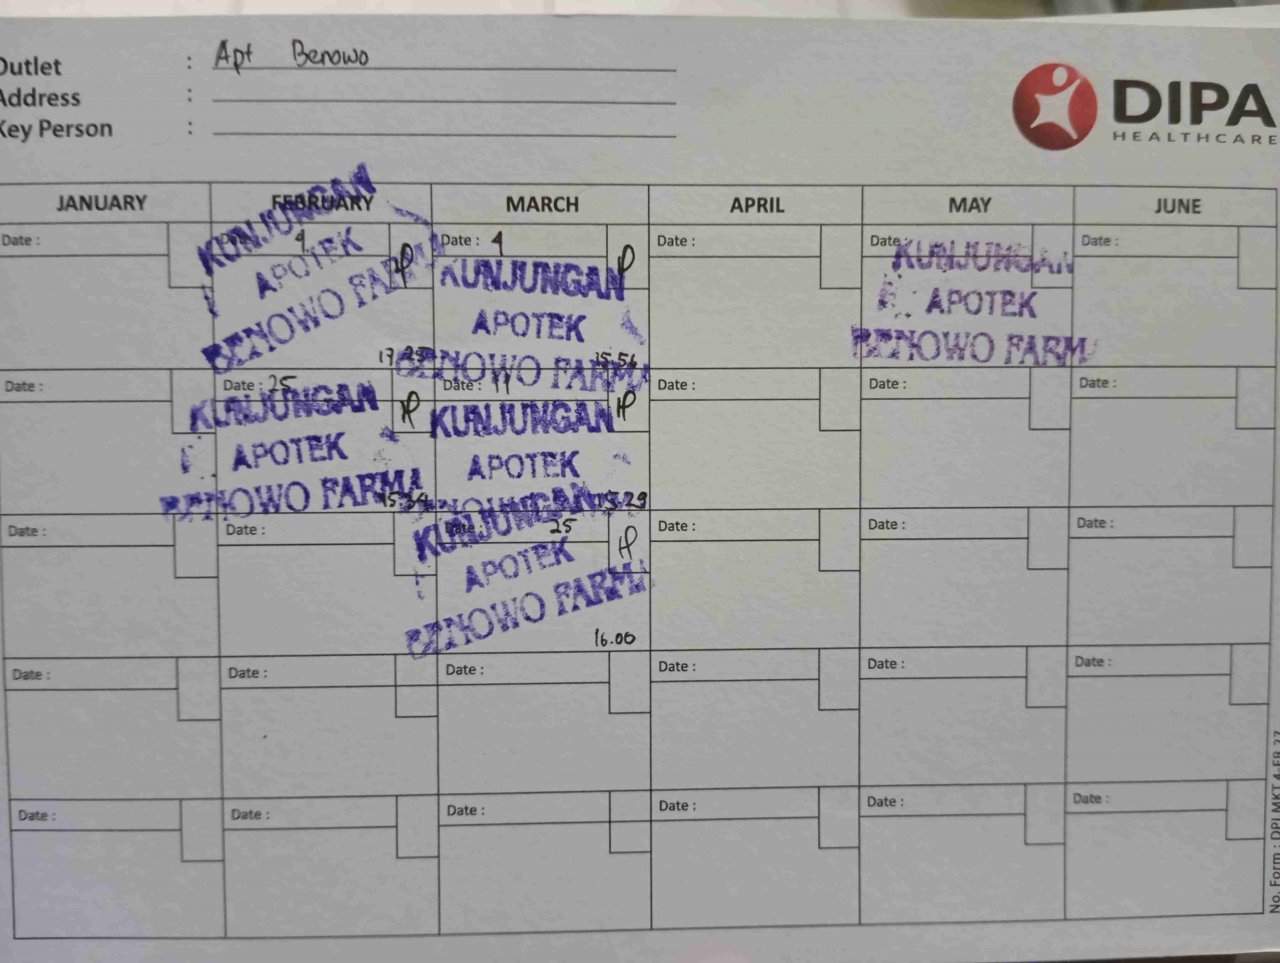 Outlet : Apt Benowo
Address :
Key Person :
DIPA
HEALTHCARE
JANUARY FEBRUARY MARCH APRIL MAY JUNE
Date : 4 Date : 4 Date : Date : Date :
KUNJUNGAN KUNJUNGAN KUNJUNGAN
APOTEK APOTEK APOTEK
BENOWO FARMA BENOWO FARMA BENOWO FARMA
17.25 15.56
Date : Date : 25 Date : 11 Date : Date : Date :
KUNJUNGAN KUNJUNGAN
APOTEK APOTEK
BENOWO FARMA
15.34 15.29
Date : Date : Date : 25 Date : Date : Date :
KUNJUNGAN
APOTEK
BENOWO FARMA
16.00
Date : Date : Date : Date : Date : Date :
Date : Date : Date : Date : Date : Date :
No. Form : DPI.MKT.4-FR.27